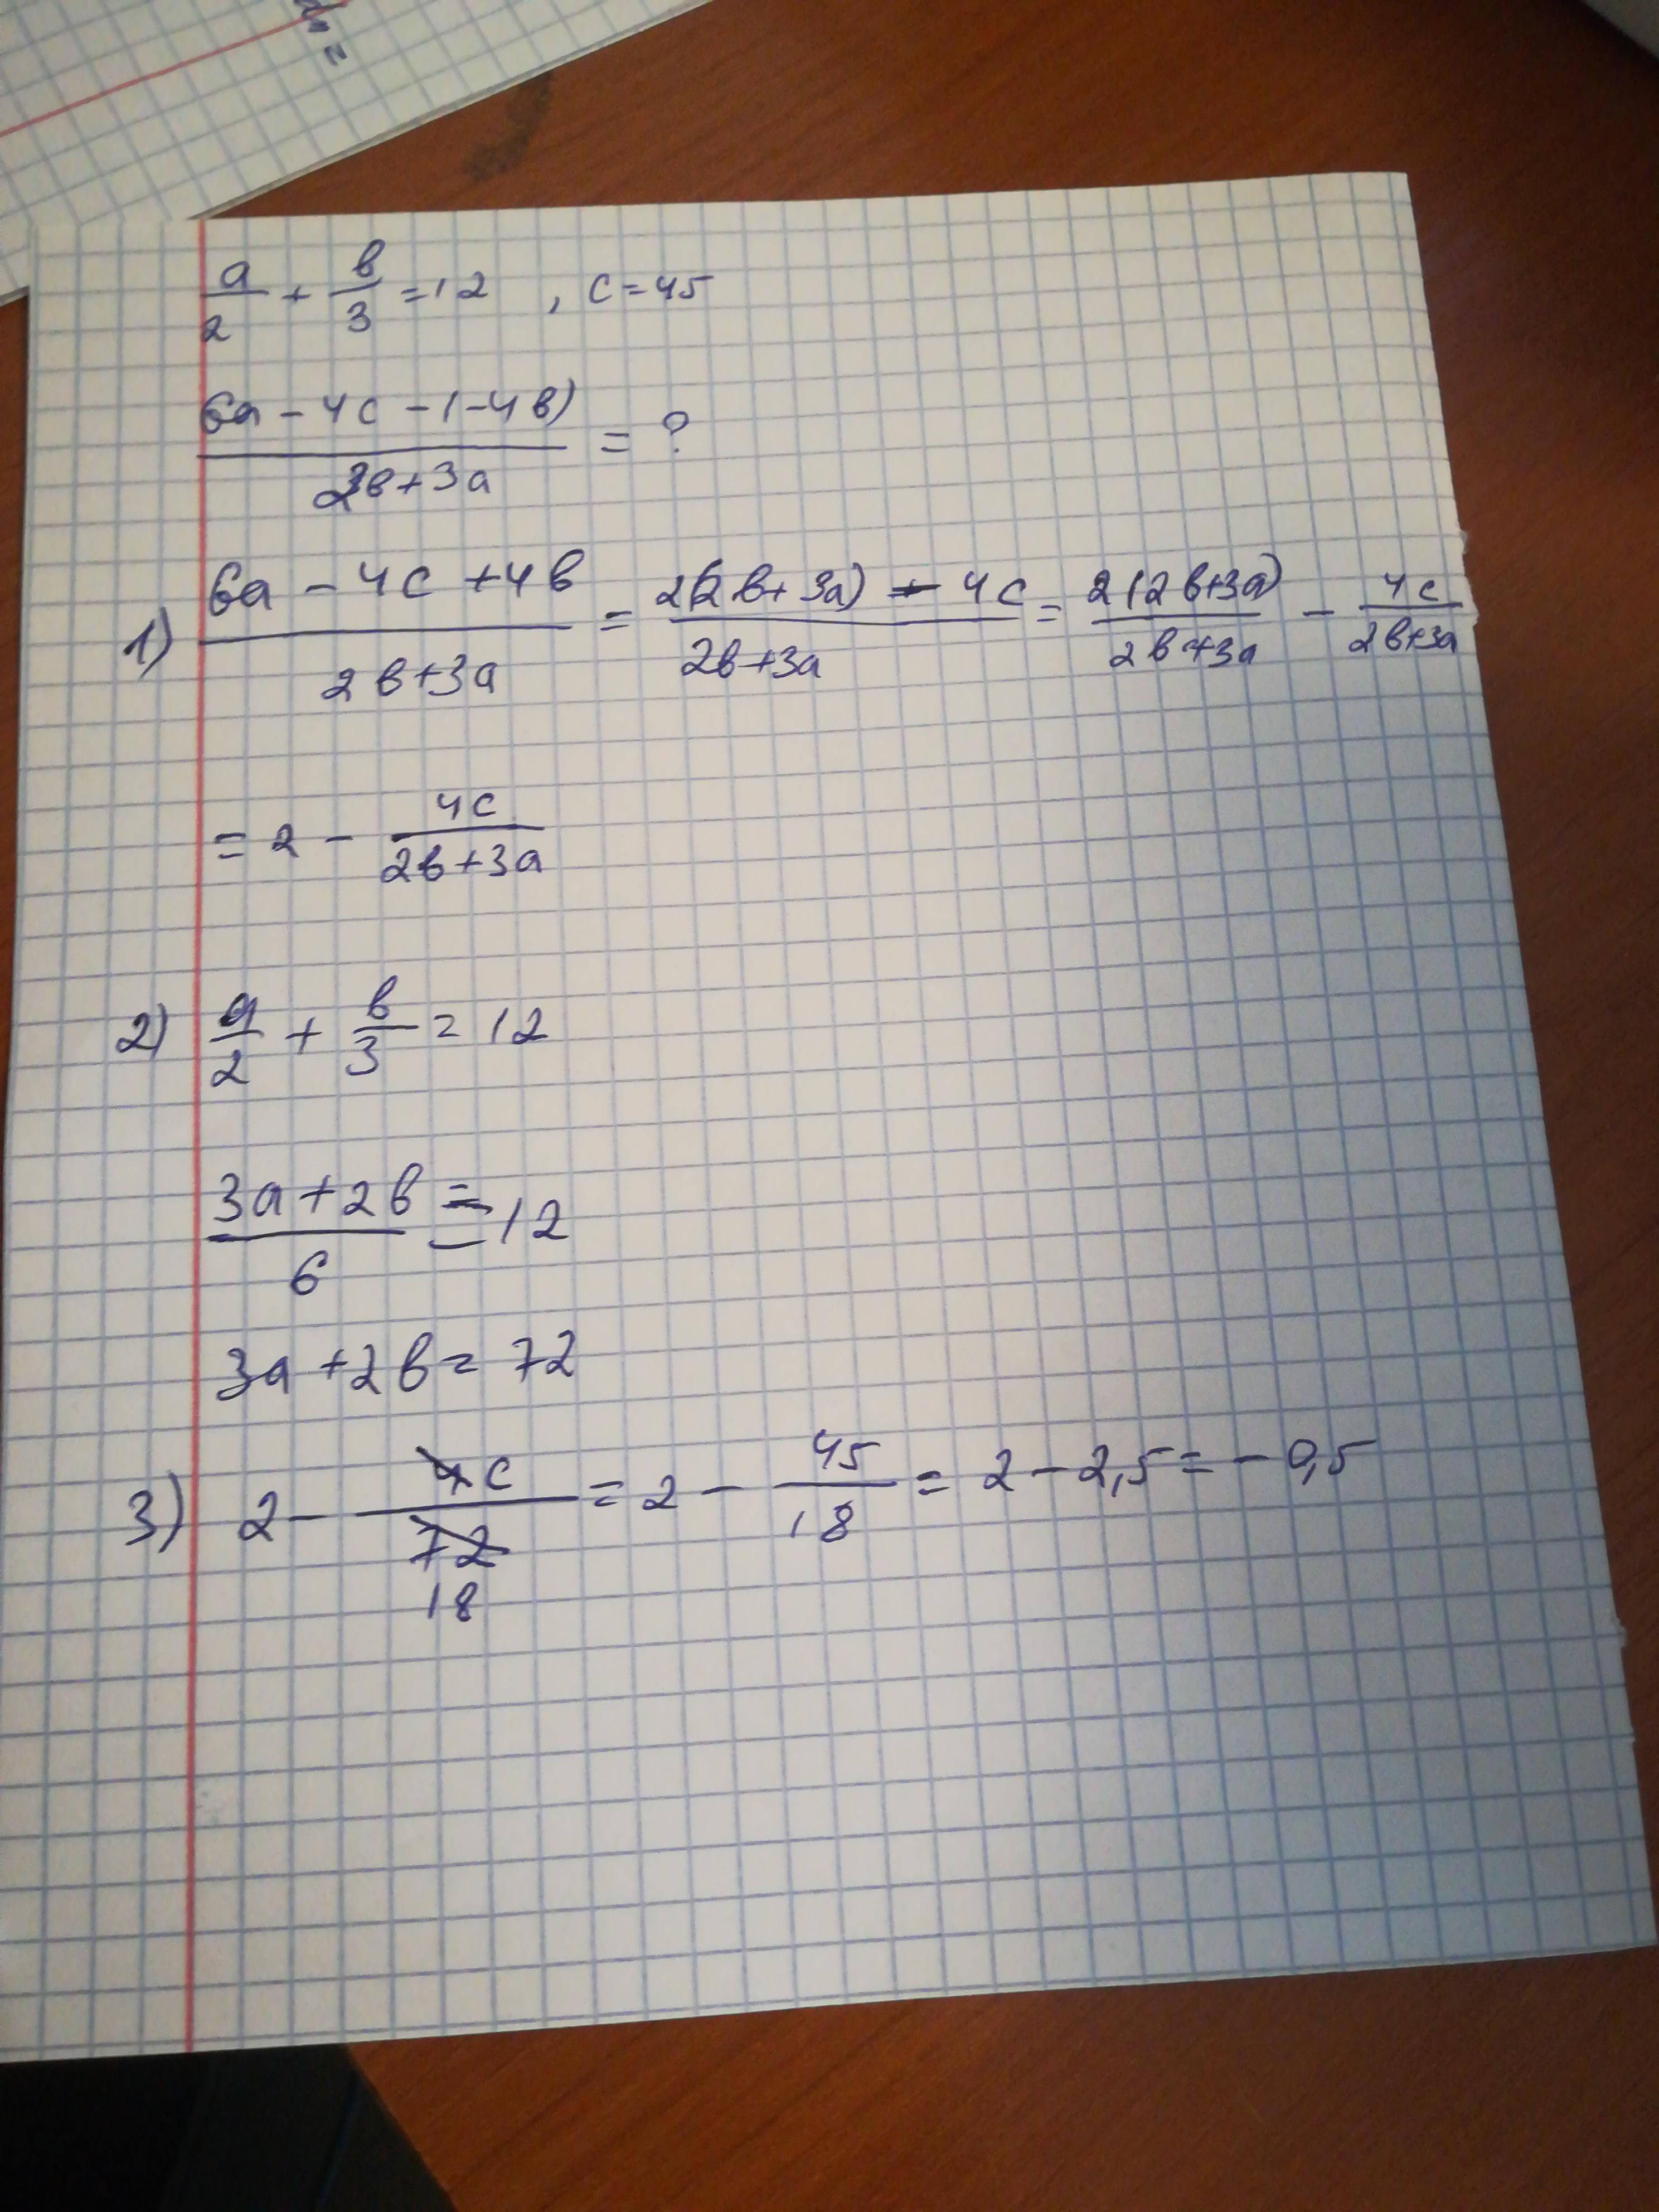 dn =
a/2 + в/3 = 12 , c = 45
(6a - 4c - (-4в))/(2в + 3a) = ?
1) (6a - 4c + 4в)/(2в + 3a) = (2(2в + 3a) - 4c)/(2в + 3a) = 2(2в + 3a)/(2в + 3a) - 4c/(2в + 3a)
= 2 - 4c/(2в + 3a)
2) a/2 + в/3 = 12
(3a + 2в)/6 = 12
3a + 2в = 72
3) 2 - 4c/72 18 = 2 - 45/18 = 2 - 2,5 = - 0,5